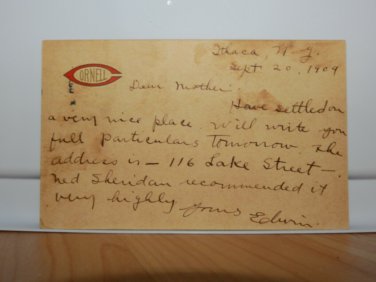 Ithaca N. Y.
Sept 20, 1909
CORNELL
Dear Mother
Have settled on
a very nice place Will write you
full particulars tomorrow. The
address is — 116 Lake Street —
Ned Sheridan recommended it
very highly
Yours
Edwin.